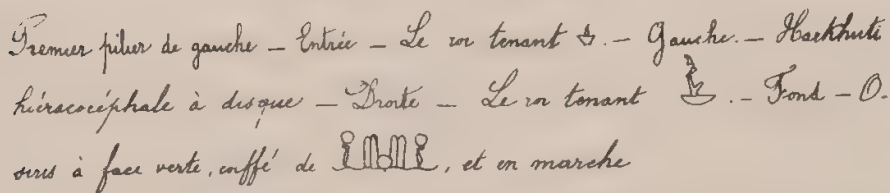 Premier pilier de gauche – Entrée – Le roi tenant . – Gauche. – Harkhuti
hiéracocéphale à disque – Droite – Le roi tenant . – Fond – O-
siris à face verte, coiffé de , et en marche